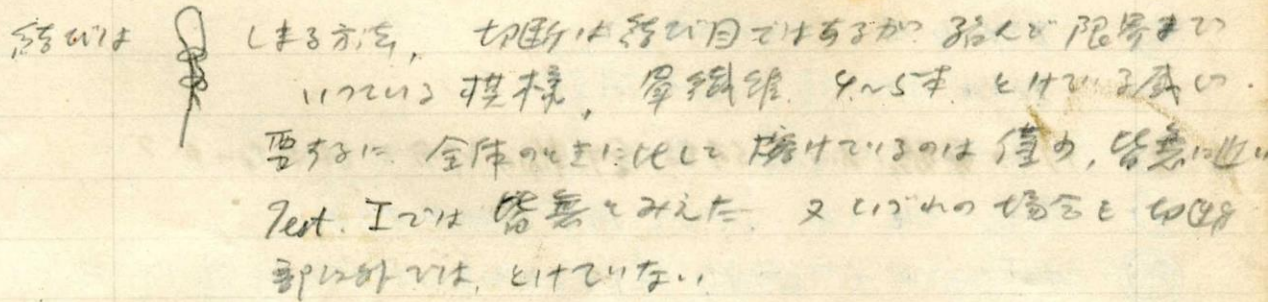 結びは しまる方法、 切断は結び目ではあるが 殆んど限界まで
いっている模様、 単繊維 4〜5本 とけている感じ.
要するに 全体のときに比して 熔けているのは僅少、皆無に近い
Test. Iでは皆無とみえた 又いづれの場合も切断
部以外では、とけていない